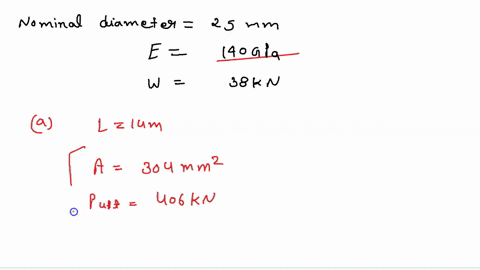 Nominal diameter = 25 mm
E = 140 GPa
W = 38 kN
(a) L = 14 m
A = 304 mm²
Pult = 406 kN